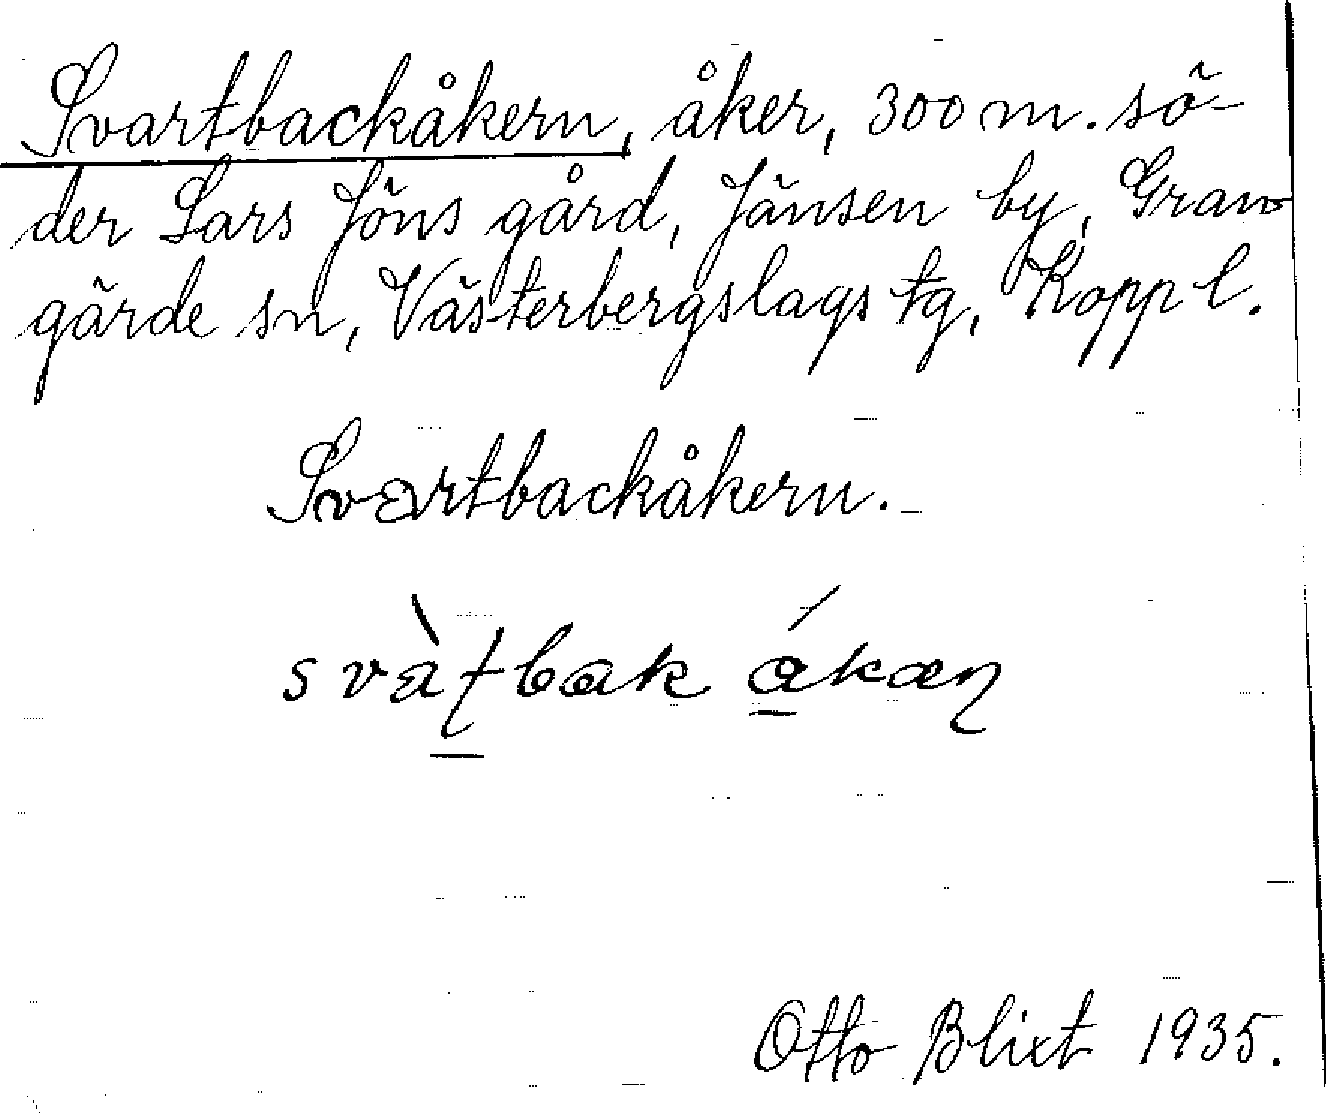 Svartbackåkern, åker, 300 m. sö-
der Lars Jöns gård, Jänsen by, Gran
gärde sn, Västerbergslags tg, Kopp l.
Svartbackåkern.
svàʈbak ákæɳ
Otto Blixt 1935.